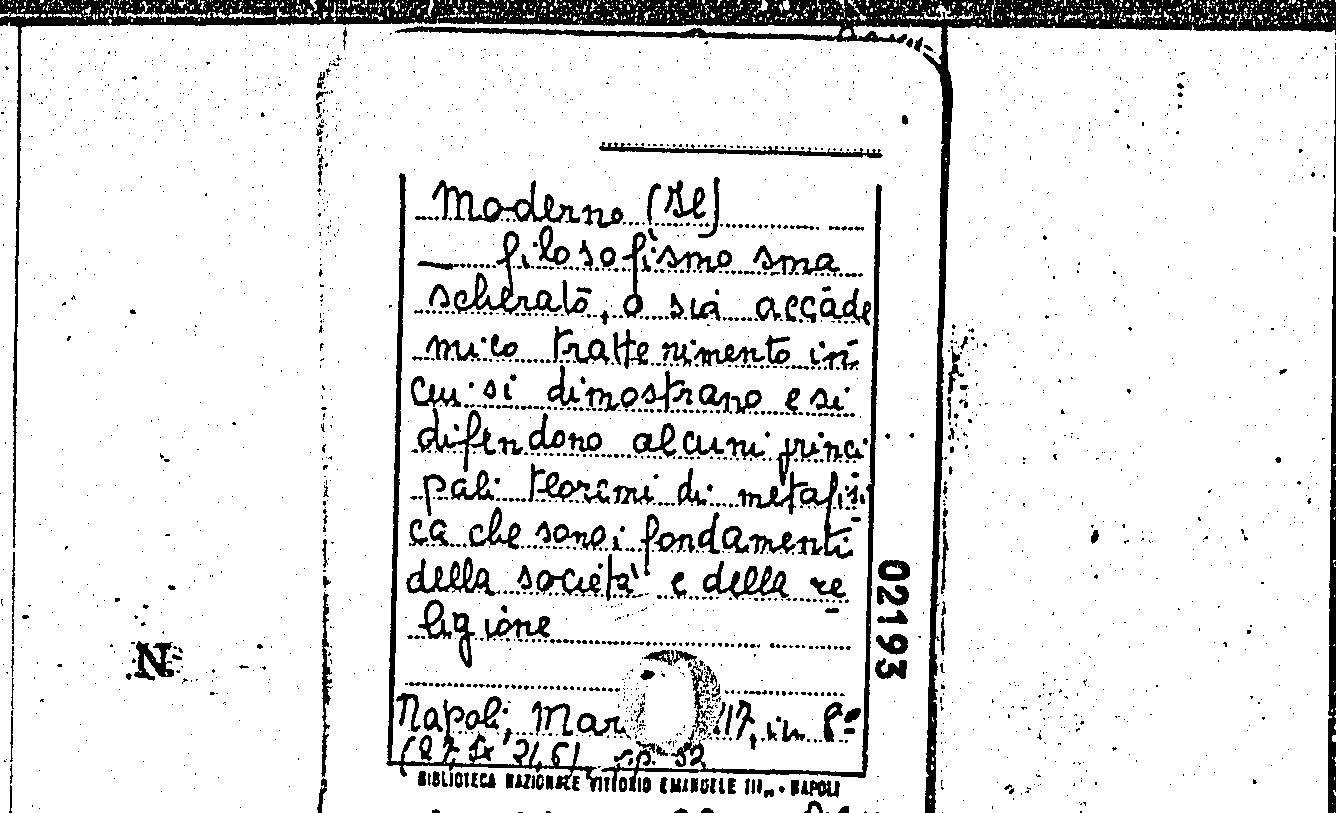 Moderno (Il)
— filosofismo sma
scherato, o sia accade
mico trattenimento in
cui si dimostrano e si
difendono alcuni princi
pali teoremi di metafisi
ca che sono i fondamenti
della società e della re
ligione
Napoli, 17, in 8º
pp. 52
BIBLIOTECA NAZIONALE VITTORIO EMANUELE III - NAPOLI
02193
N